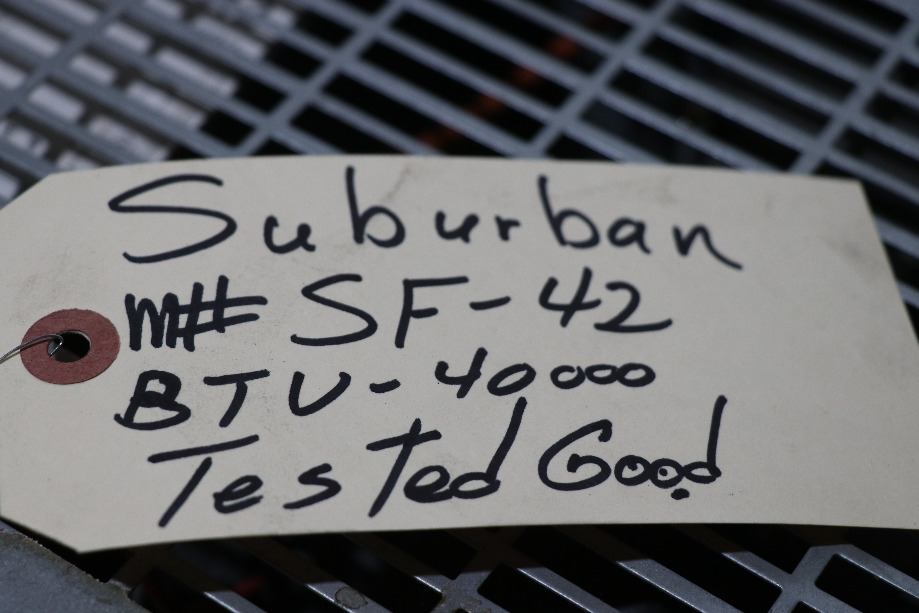 Suburban
m# SF-42
BTU-40000
Tested Good